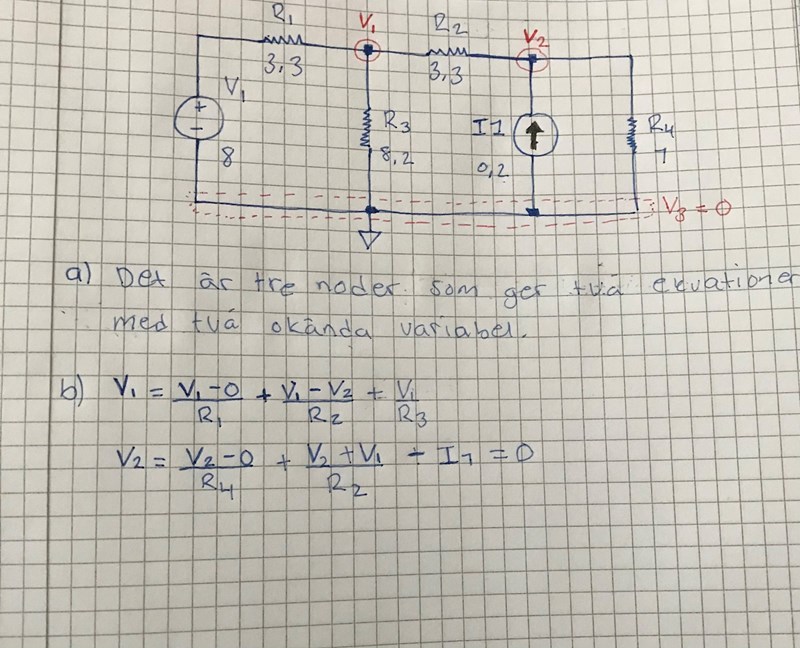 R1 V1 R2 V2
3,3 3,3
V1 R3 I1 R4
+
−
8 8,2 0,2 7
V3 = 0
a) Det är tre noder som ger två ekvationer
med två okända variabel.
b) V1 = (V1−0)/R1 + (V1−V2)/R2 + V1/R3
V2 = (V2−0)/R4 + (V2+V1)/R2 − I1 = 0